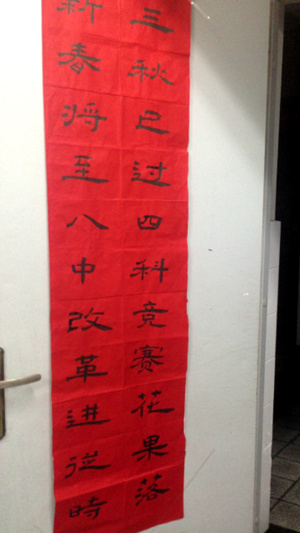 三秋已过四科竞赛花果落
新春将至八中改革進從時